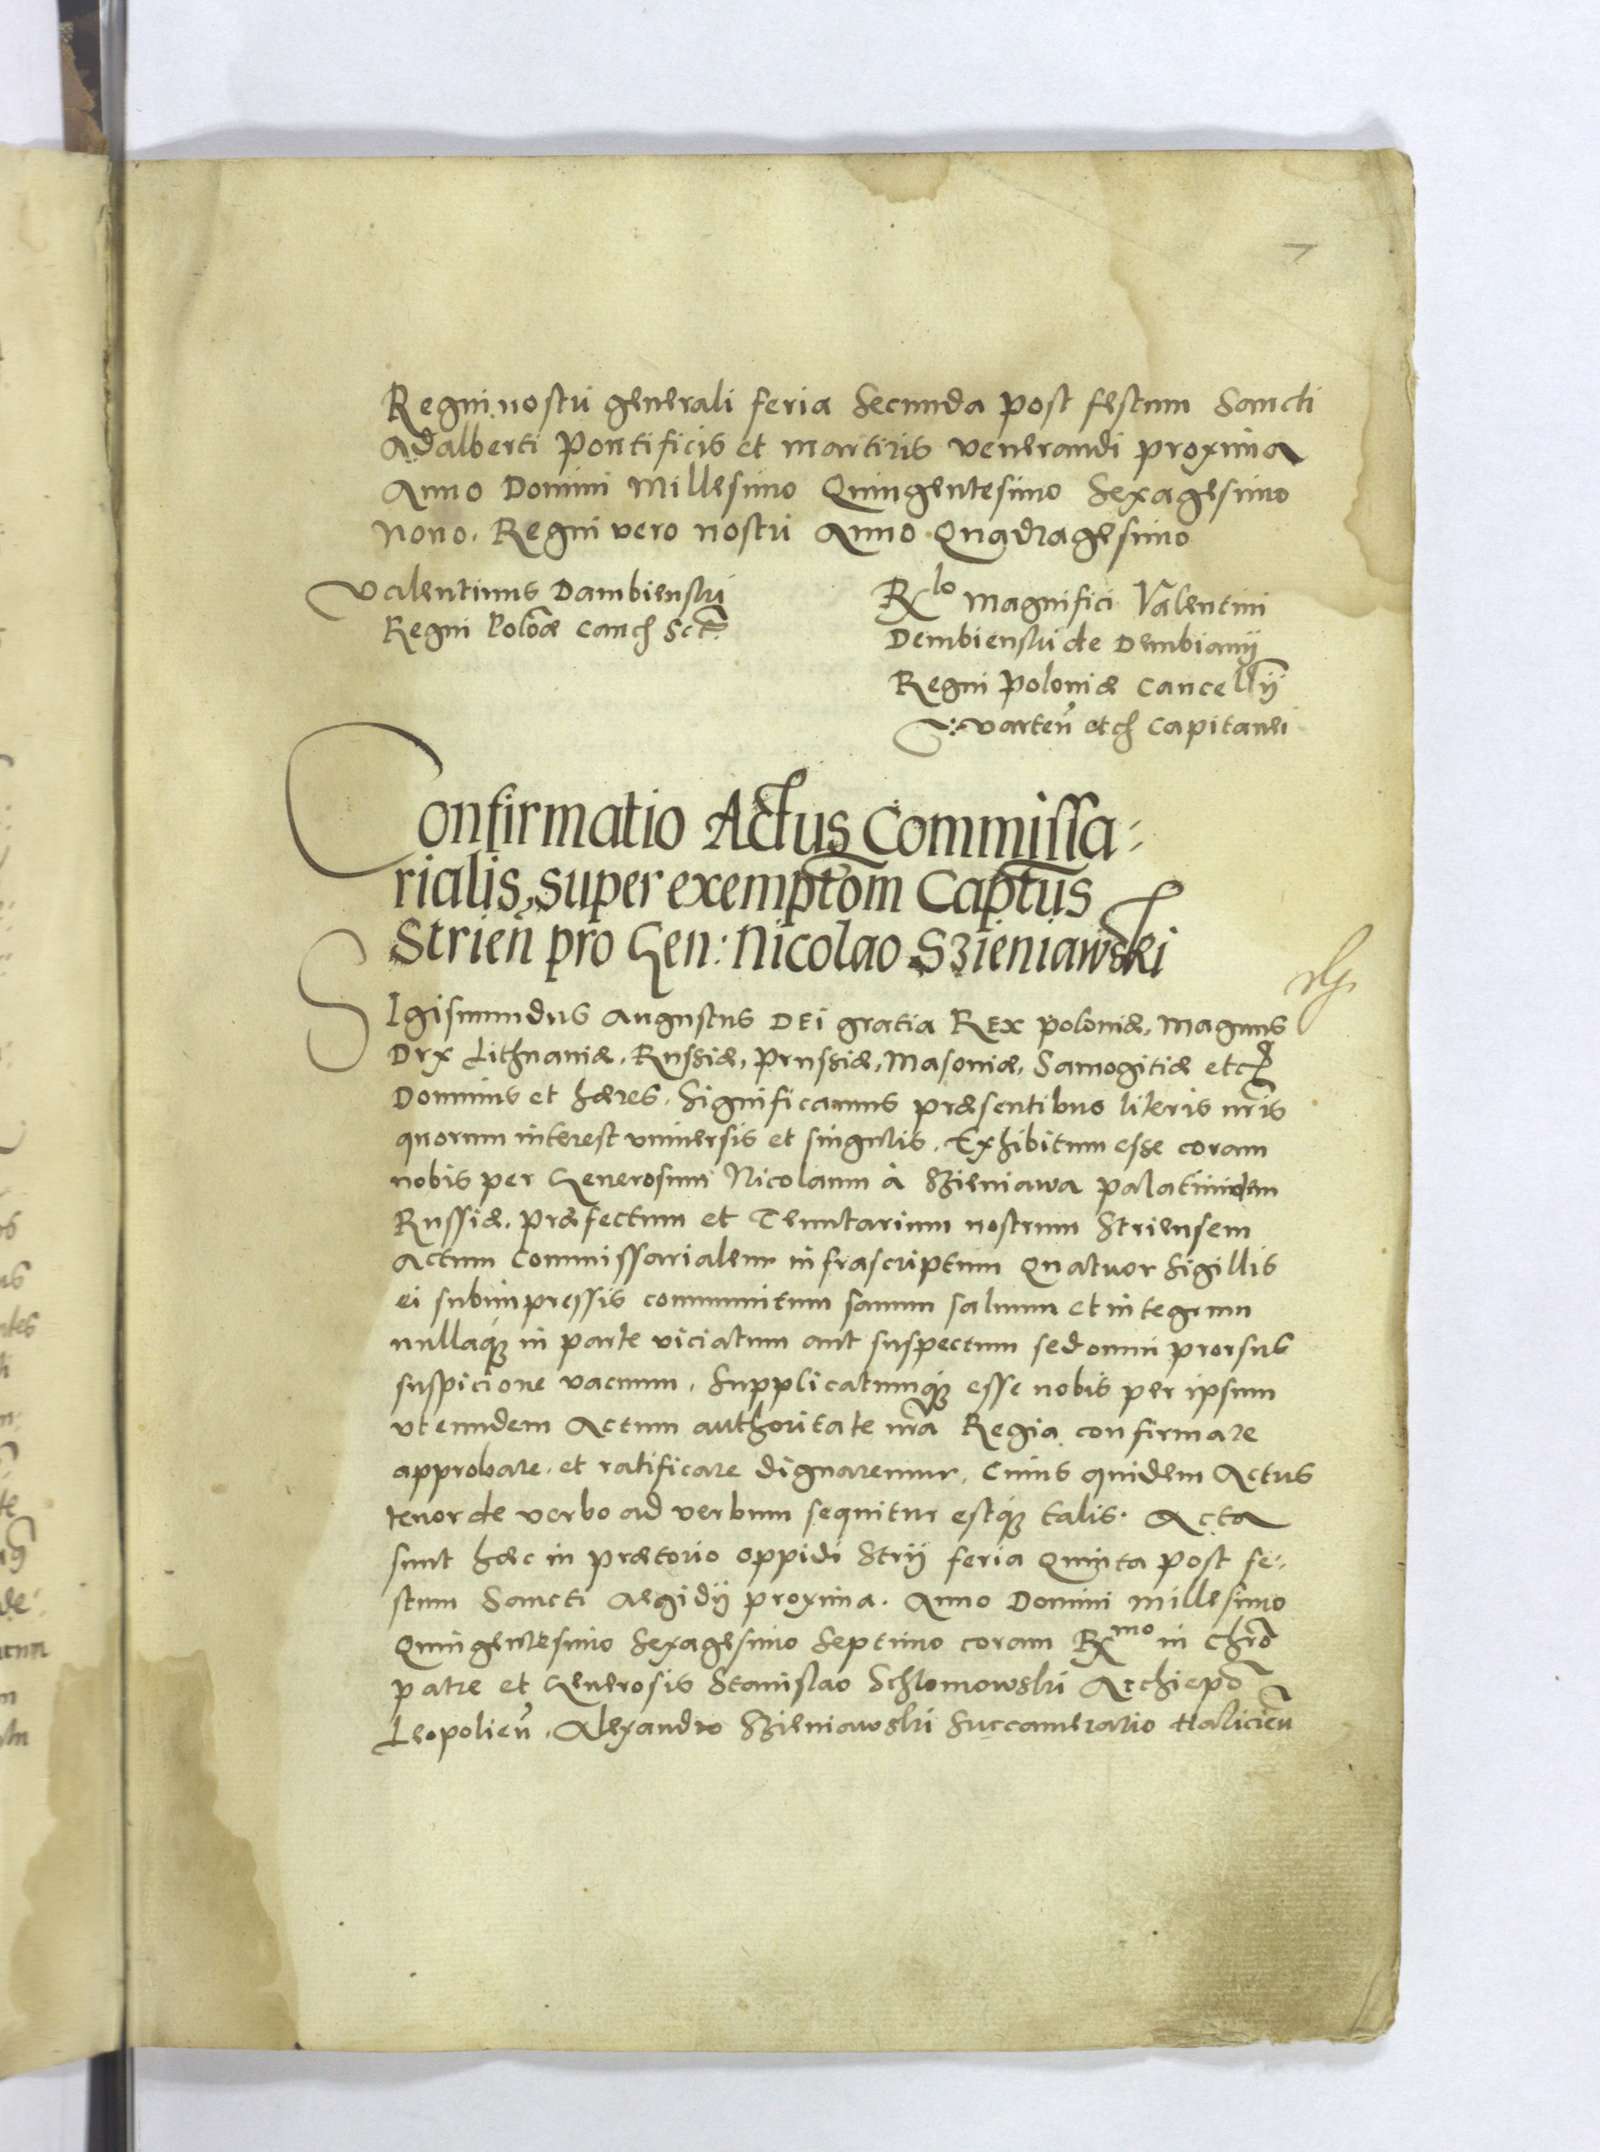 7
Regni nostri generali feria Secunda post festum Sancti
Adalberti Pontificis et martiris venerandi proxima
Anno Domini Millesimo Quingentesimo Sexagesimo
Nono. Regni vero nostri Anno Quadragesimo
Valentinus Dambienski
Regni Poloæ Canc Sct
Rlo Magnifici Valentini
Dembienski de Dembiany
Regni Poloniæ Cancellrij
Varteñ etc Capitanei
Confirmatio Actus Commissa-
rialis, super exemptom Captus
Strień pro Gen: Nicolao Szieniawski
SIgismundus Augustus DEi gratia REX Poloniæ, Magnus
Dux Lithuaniæ, Russiæ, Prussiæ, Masoniæ, Samogitiæ etc
Dominus et hæres. Significamus præsentibus literis nris
quorum interest universis et singulis. Exhibitum esse coram
nobis per Generosum Nicolaum à Szieniawa palatinidem
Russiæ, Præfectum et Tenutarium nostrum Striensem
Actum Commissarialem infrascriptum Quatuor Sigillis
ei subimpressis communitum sanum saluum et integrum
nullaq in parte viciatum aut suspectum sed omni prorsus
suspicione vacuum. Supplicatumq esse nobis per ipsum
vt eundem Actum authoritate nra Regia confirmare
approbare et ratificare dignaremur. Cuius quidem Actus
tenor de verbo ad verbum sequitur estq talis. Acta
sunt hæc in Prætorio oppidi Strij feria Quinta post fe-
stum Sancti Aegidij proxima. Anno Domini Millesimo
Quingentesimo Sexagesimo Septimo coram Rmo in Chro
patre et Generosis Stanislao Schlomowski Archiepo
Leopolieñ. Alexandro Szieniawski Succamerario Halicień